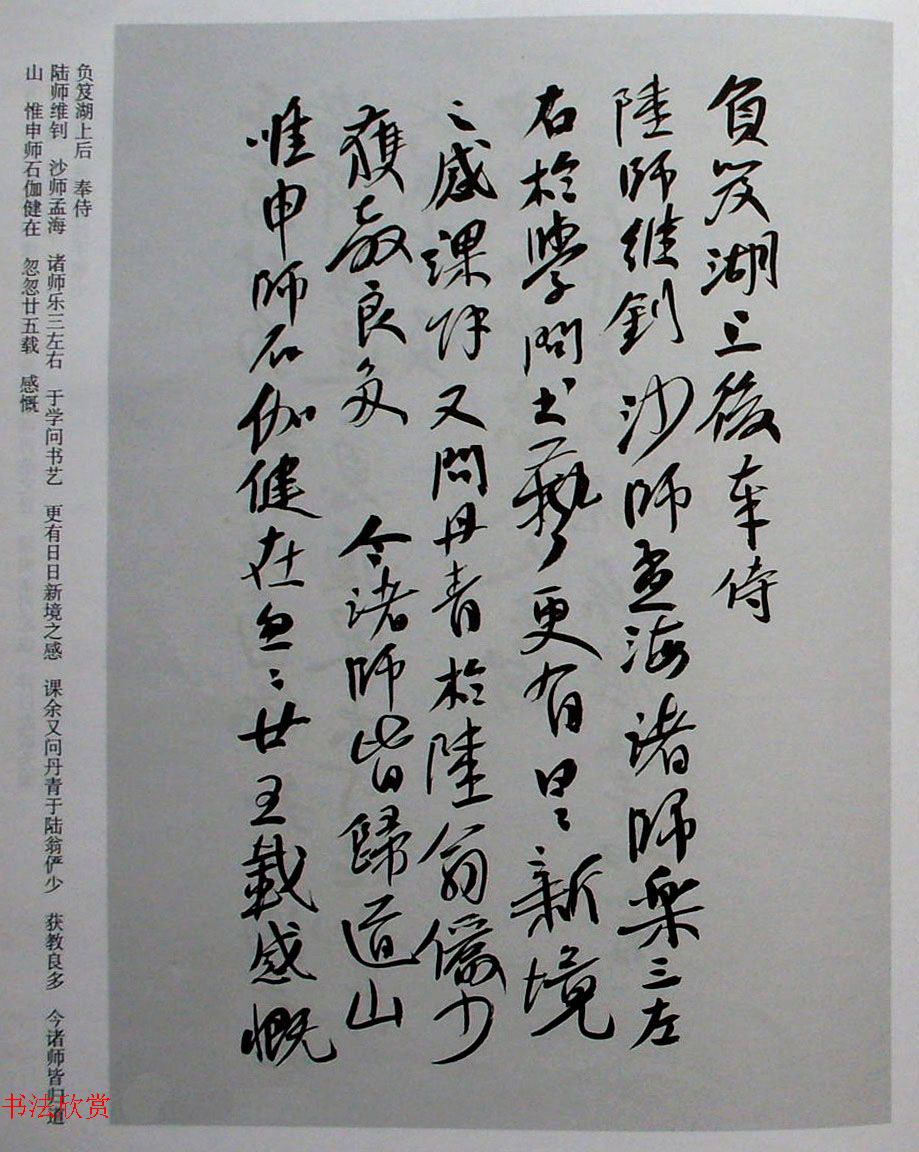 負笈湖上後奉侍
陸師維釗沙師孟海諸師樂三左
右於學問書藝更有日〻新境
之感課餘又問丹青於陸翁儼少
獲教良多 今諸師皆歸道山
唯申師石伽健在忽〻廿五載感慨
负笈湖上后 奉侍
陆师维钊 沙师孟海 诸师乐三左右 于学问书艺 更有日日新境之感 课余又问丹青于陆翁俨少 获教良多 今诸师皆归道
山 惟申师石伽健在 忽忽廿五载 感慨
书法欣赏